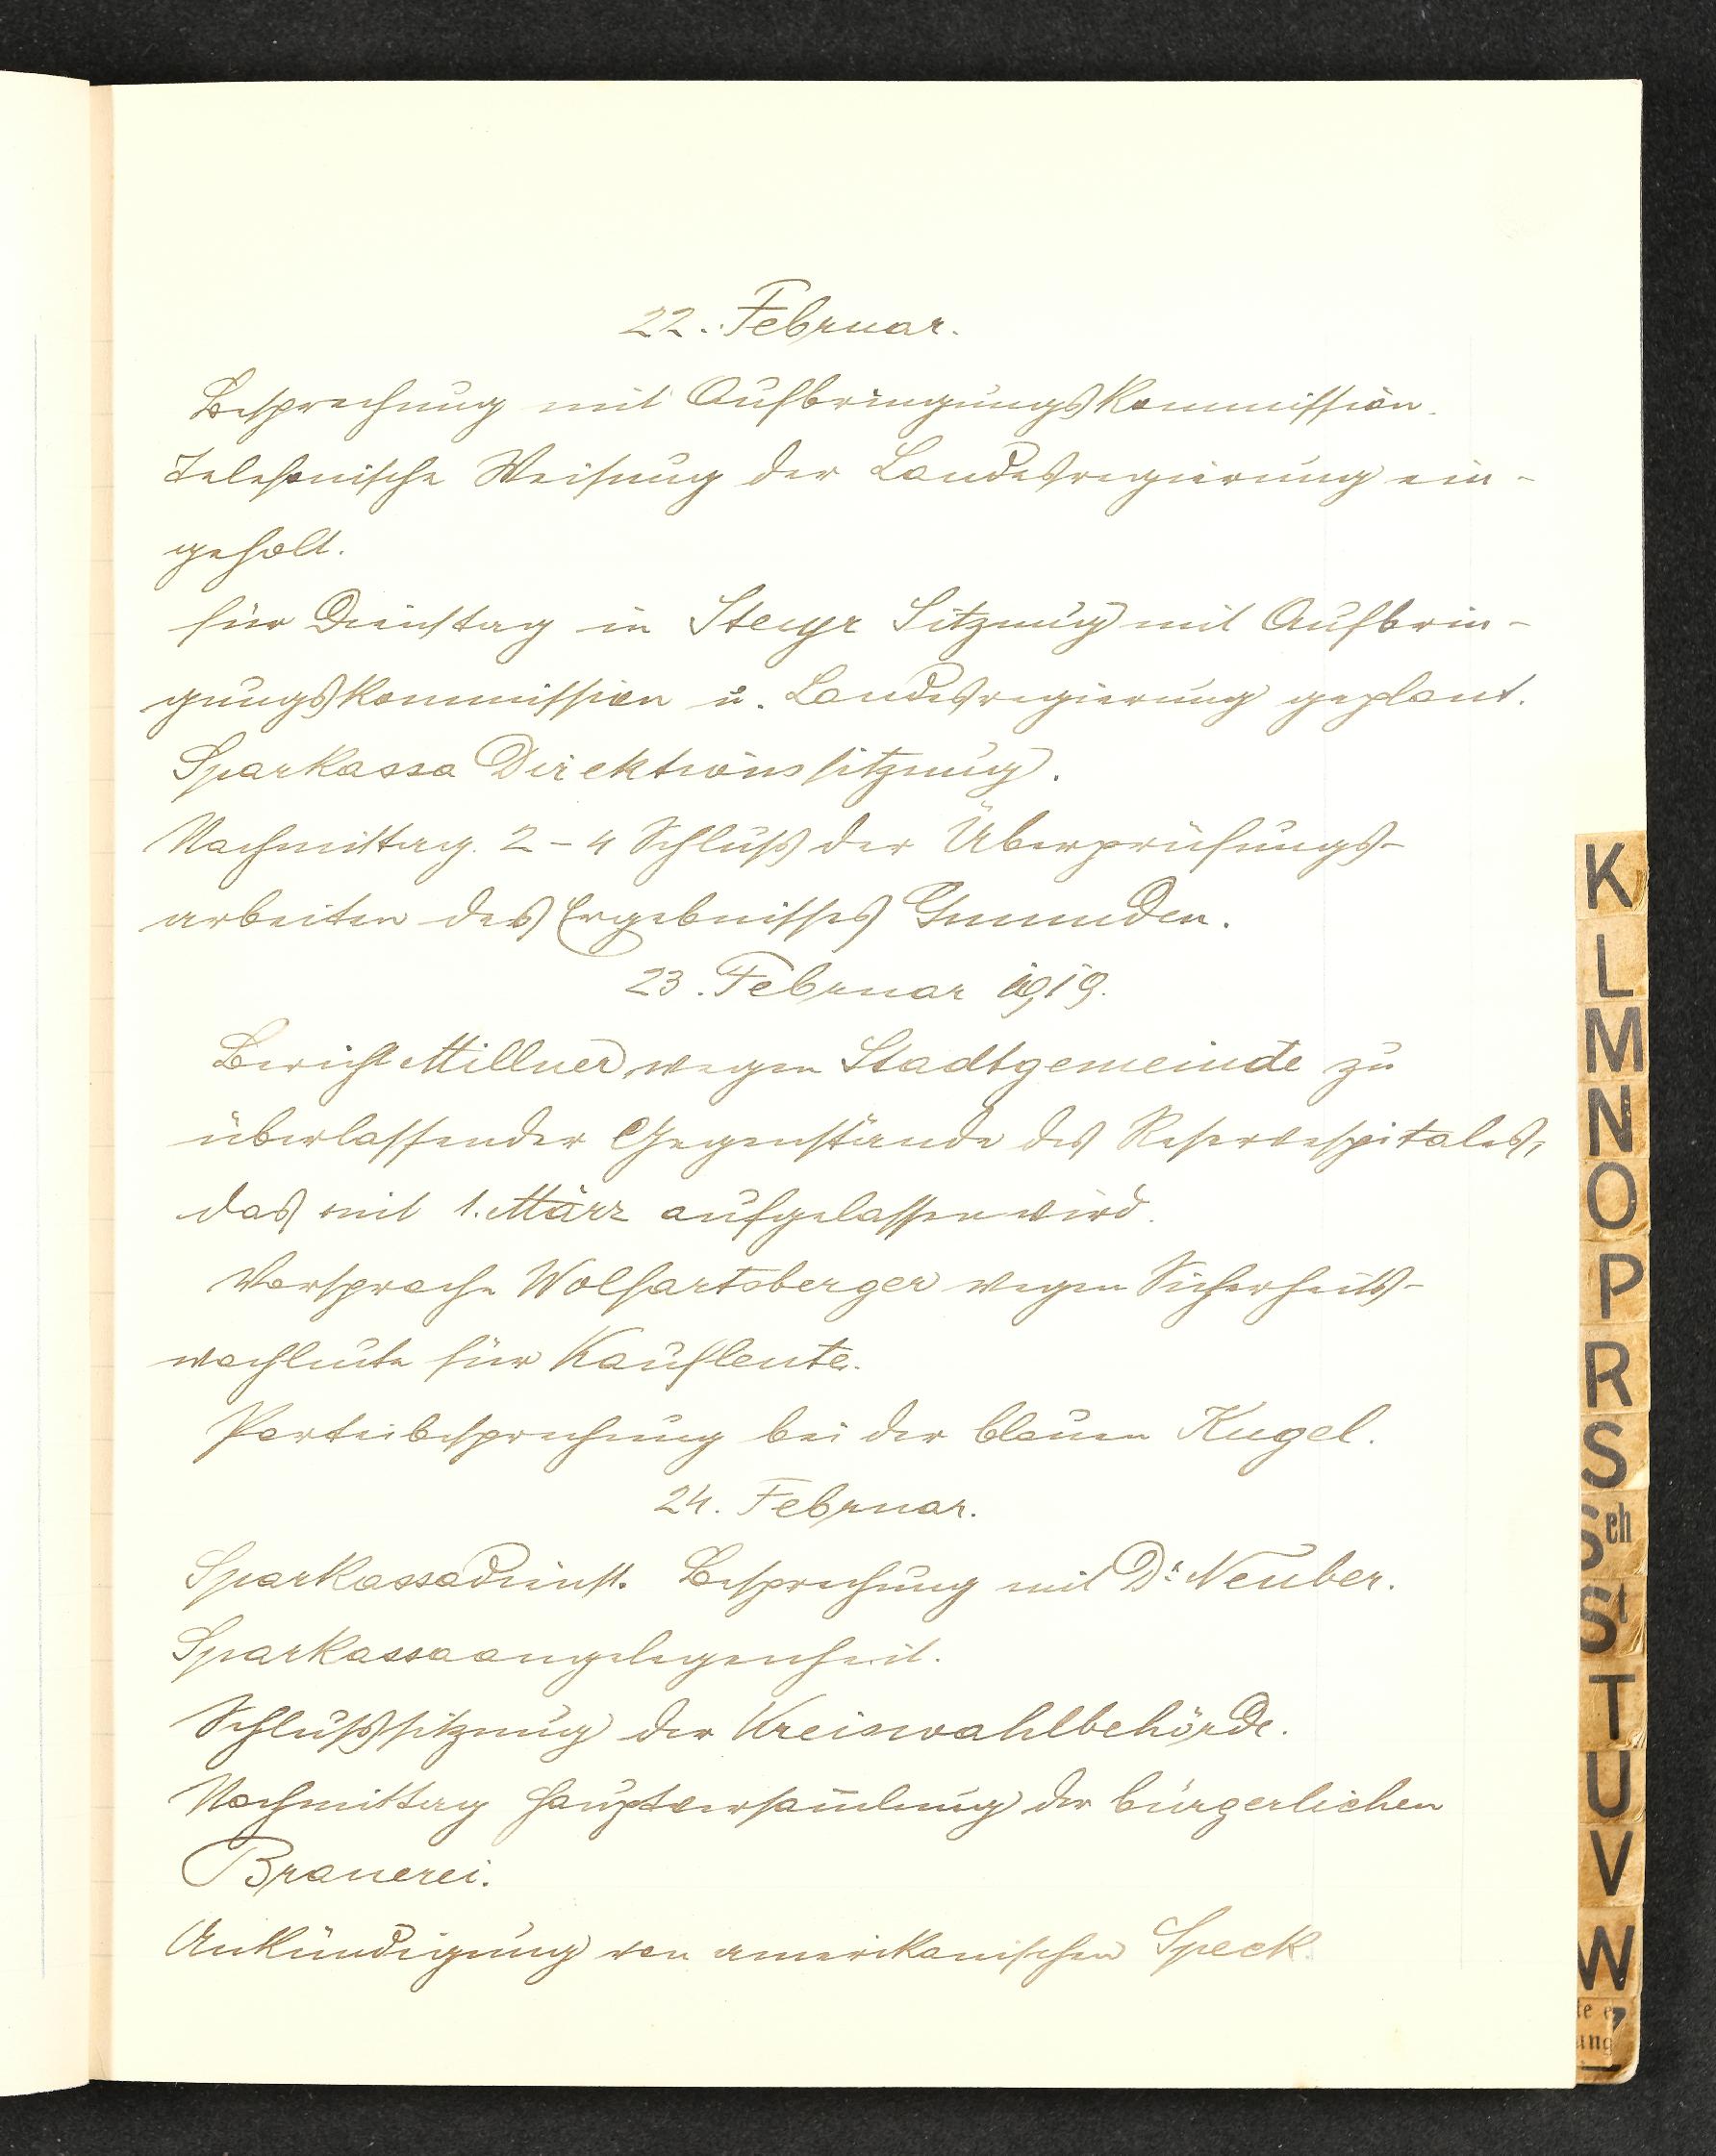 22. Februar.
Besprechung mit Aufbringungskommission.
Telefonische Weisung der Landesregierung ein-
geholt.
Für Dienstag in Steyr Sitzung mit Aufbrin-
gungskommission u. Landesregierung geplant.
Sparkassa Direktionssitzung.
Nachmittag 2-4 Schluß der Überprüfungs-
arbeiten des Ergebnisses Gmunden.
23. Februar 1919.
Bericht Millner wegen Stadtgemeinde zu
überlassender Gegenstände des Reservespitales,
das mit 1. März aufgelassen wird.
Vorsprache Wolfartsberger wegen Sicherheits-
wachleute für Kaufleute.
Parteibesprechung bei der blauen Kugel.
24. Februar.
Sparkassadienst. Besprechung mit Dr. Neuber.
Sparkassaangelegenheit.
Schlußsitzung der Kreiswahlbehörde.
Nachmittag Hauptversam̅lung der bürgerlichen
Brauerei.
Ankündigung von amerikanischen Speck.
K
L
M
N
O
P
R
S
Sch
St
T
U
V
W